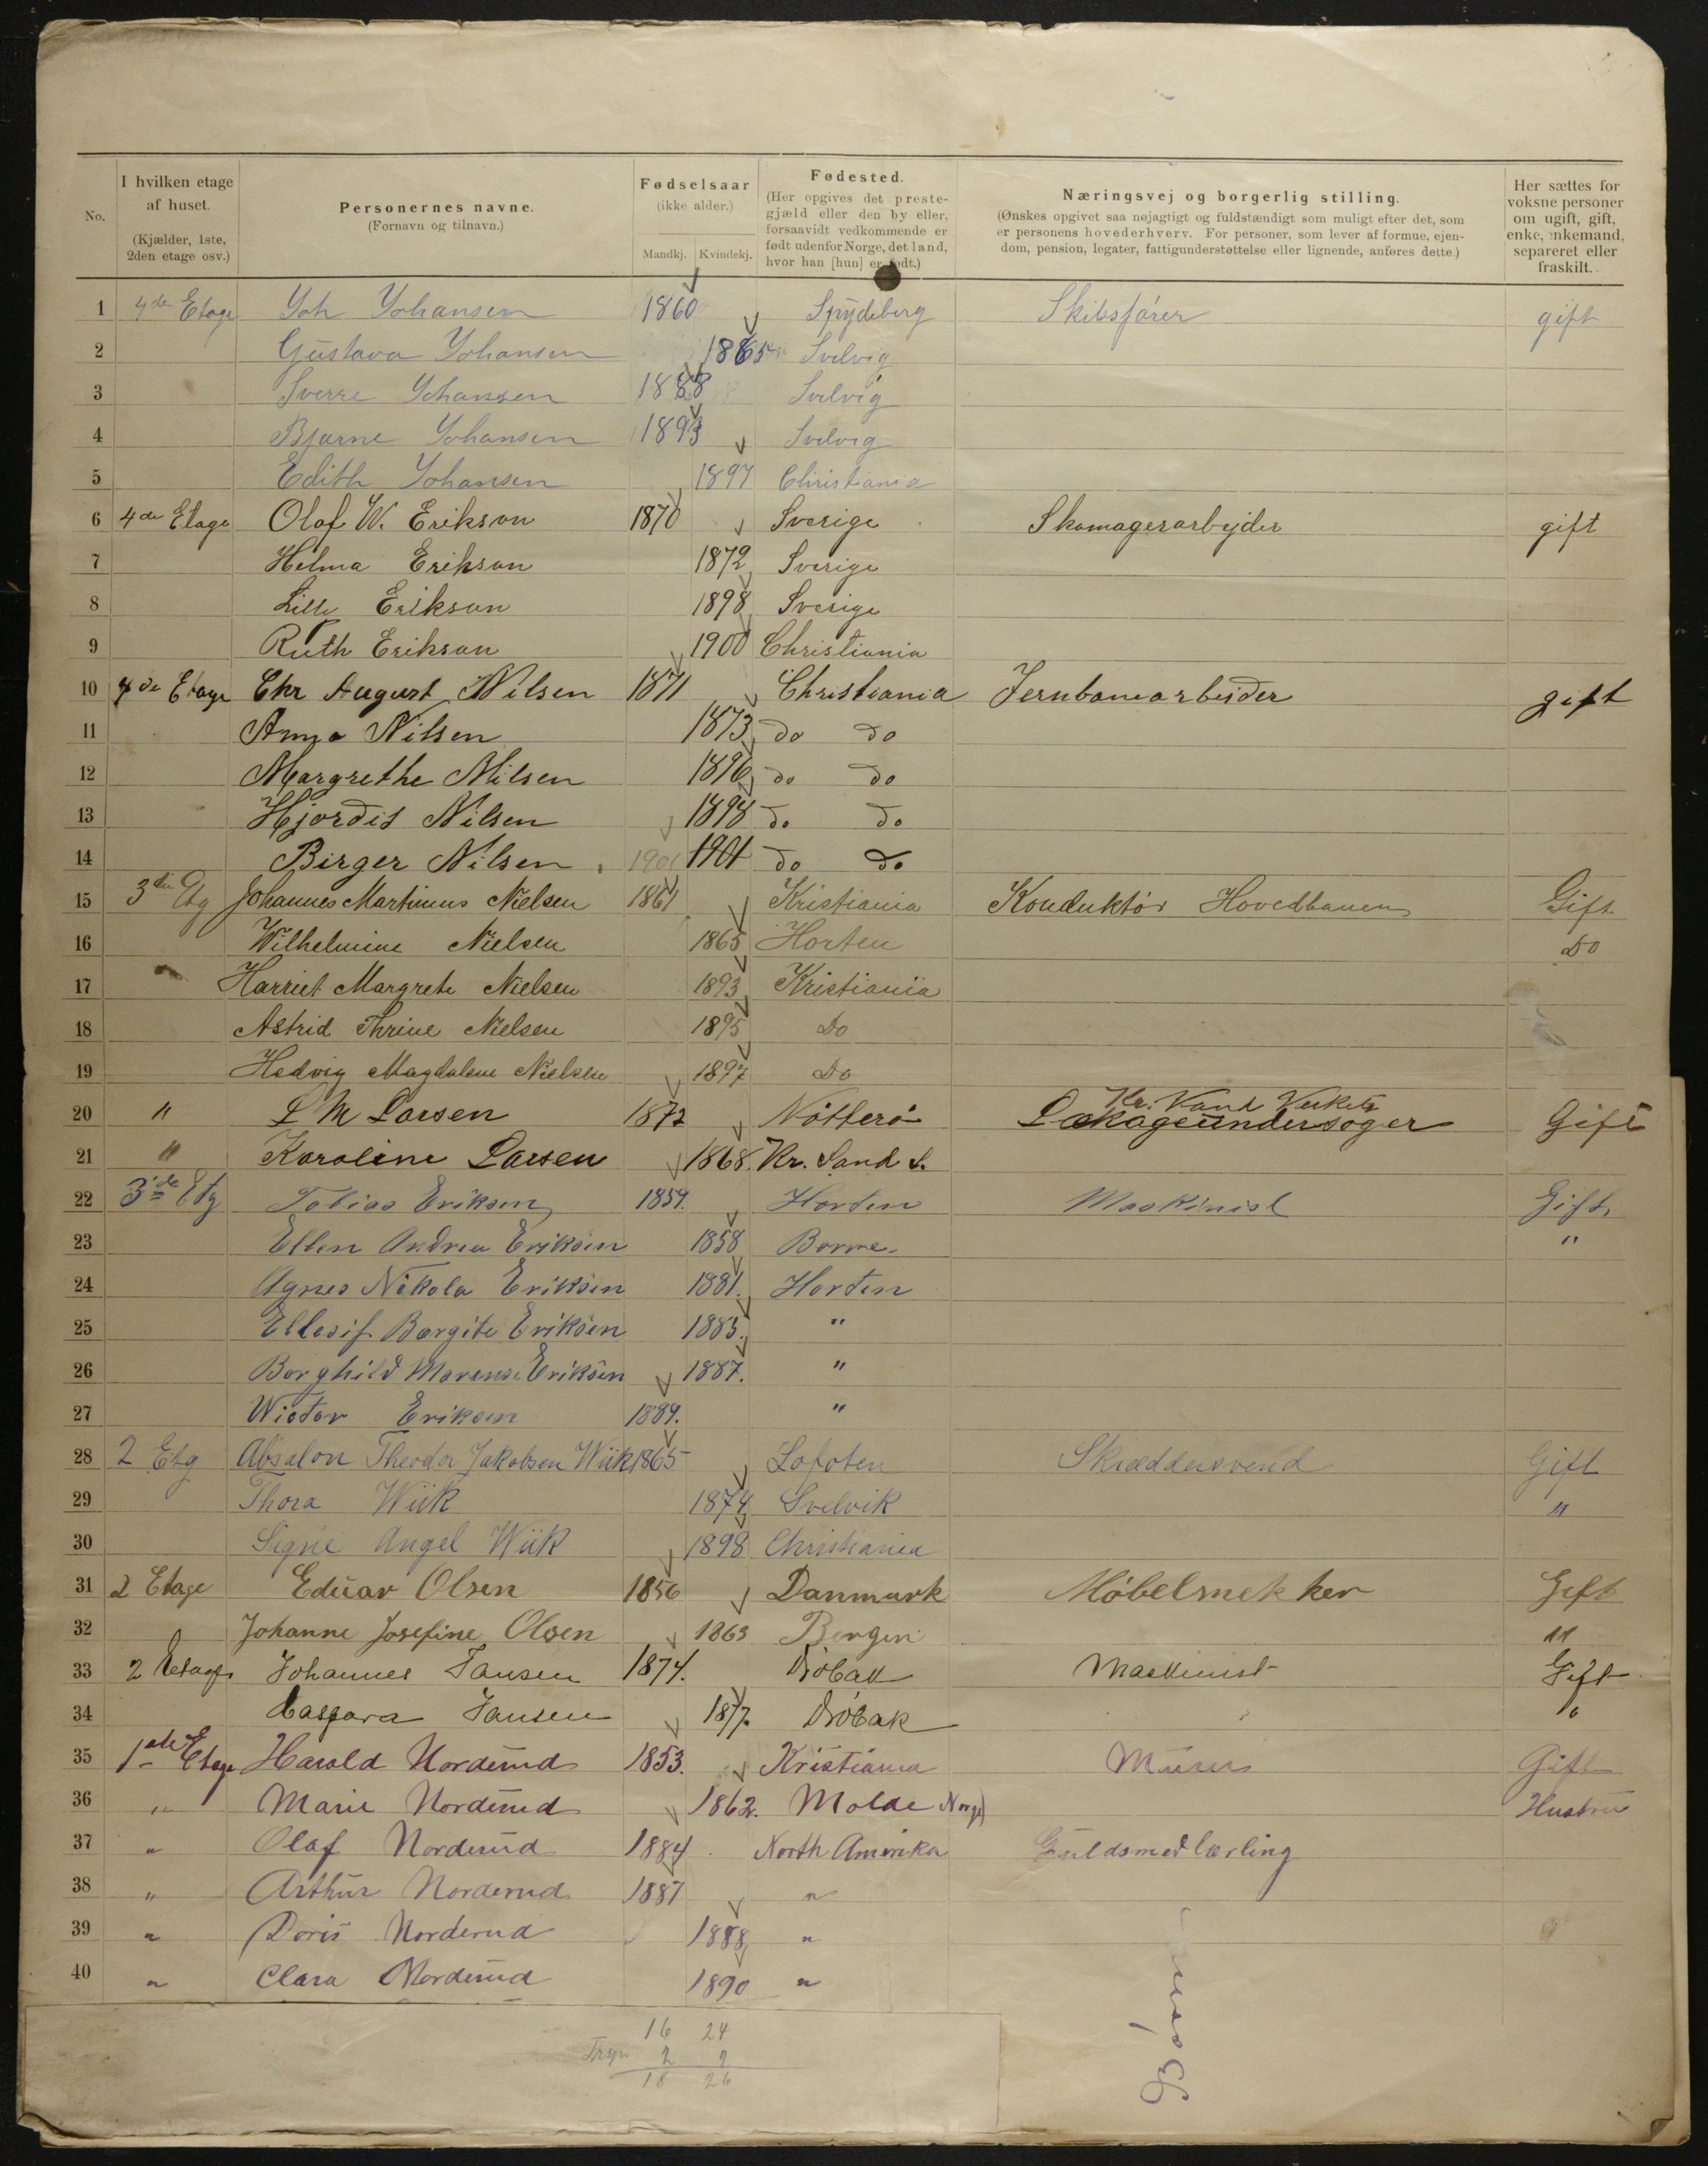 No. I hvilken etage af huset. (Kjælder, 1ste, 2den etage osv.) Personernes navne. (Fornavn og tilnavn.) Fødselsaar (ikke alder.) Mandkj. Kvindekj. Fødested. (Her opgives det prestegjæld eller den by eller, forsaavidt vedkommende er født udenfor Norge, det land, hvor han [hun] er født.) Næringsvej og borgerlig stilling. (Ønskes opgivet saa nøjagtigt og fuldstændigt som muligt efter det, som er personens hovederhverv. For personer, som lever af formue, ejendom, pension, legater, fattigunderstøttelse eller lignende, anføres dette.) Her sættes for voksne personer om ugift, gift, enke, enkemand, separeret eller fraskilt.
1 4de Etage Joh Johansen 1860 Spydeberg Skibsfører gift
2 Gustava Johansen 1865 Svelvig
3 Sverre Johansen 1888 Svelvig
4 Bjarne Johansen 1893 Svelvig
5 Edith Johansen 1897 Christiania
6 4de Etage Olof W. Erikson 1870 Sverige Skomagerarbejder gift
7 Helma Erikson 1872 Sverige
8 Lilly Erikson 1898 Sverige
9 Ruth Erikson 1900 Christiania
10 4de Etage Chr August Nilsen 1871 Christiania Jernbanearbeider gift
11 Anna Nilsen 1873 do do
12 Margrethe Nilsen 1896 do do
13 Hjordis Nilsen 1898 do do
14 Birger Nilsen 1901 1901 do do
15 3die Etg Johannes Martinius Nielsen 1861 Kristiania Konduktør Hovedbanen Gift
16 Wilhelmine Nielsen 1865 Horten Do
17 Harriet Margrete Nielsen 1893 Kristiania
18 Astrid Thrine Nielsen 1895 Do
19 Hedvig Magdalene Nielsen 1897 Do
Kr. Vand Verkets
20 " L M Larsen 1872 Nøtterø Lækageundersøger Gift
21 " Karoline Larsen 1868. Kr. Sand S.
22 3de Etg Tobias Eriksen 1859. Horten Maskinist Gift.
23 Ellen Andrea Eriksen 1858 Borre. "
24 Agnes Nikola Eriksen 1881. Horten
25 Ellesif Borgite Eriksen 1883. "
26 Borghild Marense Eriksen 1887. "
27 Wictor Eriksen 1889. "
28 2 Etg Absalon Theodor Jakobsen Wiik 1865 Lofoten Skræddersvend Gift
29 Thora Wiik 1874 Svelvik "
30 Signe Angel Wiik 1898 Christiania
31 2 Etage Eduar Olsen 1856 Danmark Møbelsnekker Gift
32 Johanne Josefine Olsen 1863 Bergen "
33 2 Etage Johannes Jansen 1874. Drøbak Maskinist Gift
34 Caspara Jansen 1877. Drøbak "
35 1ste Etage Harald Norderud 1853. Kristiania Murer Gift
36 " Marie Norderud 1862. Molde Norge) Hustru
37 " Olaf Norderud 1884 North Amerika Guldsmedlærling
38 " Arthur Norderud 1887 "
39 " Doris Norderud 1888 "
40 " Clara Norderud 1890 "
16 24
2 2
18 26